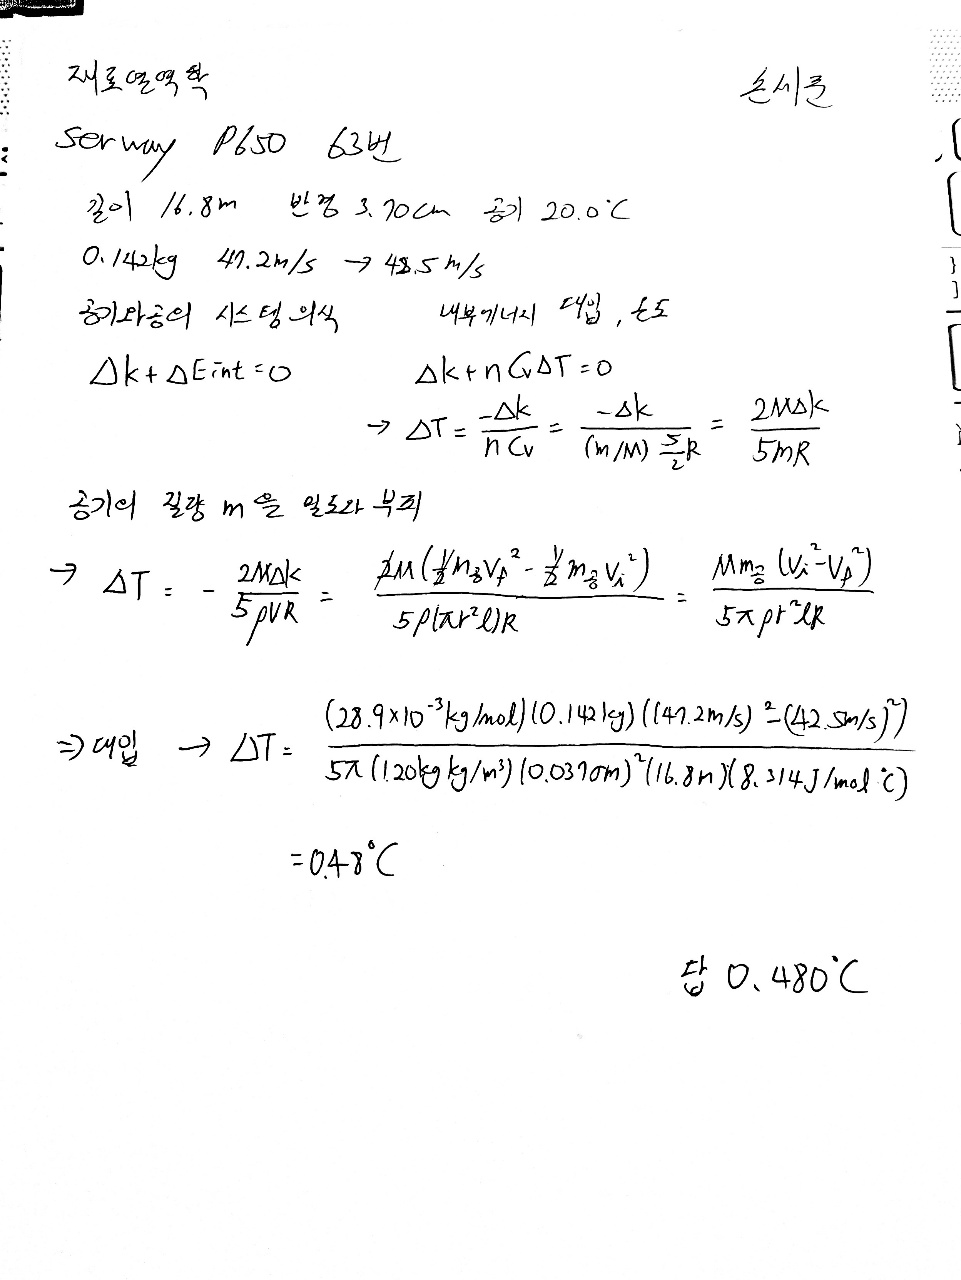 재료열역학 손시준
serway P650 63번
길이 16.8m 반경 3.70cm 공기 20.0°C
0.142kg 47.2m/s → 42.5m/s
공기와공의 시스템의식 내부에너지 대입, 온도
Δk+ΔEint=0 Δk+nCvΔT=0
→ ΔT = -Δk / nCv = -Δk / (m/M) 5/2 R = 2MΔk / 5mR
공기의 질량 m을 밀도와 부피
→ ΔT = - 2MΔk / 5ρVR = 2M(½m공Vf² - ½m공Vi²) / 5ρ(πr²l)R = Mm공(Vi²-Vf²) / 5πρr²lR
⇒ 대입 → ΔT = (28.9×10⁻³kg/mol)(0.142kg)((47.2m/s)²-(42.5m/s)²) / 5π(1.20kg kg/m³)(0.0370m)²(16.8m)(8.314J/mol°C)
=0.48°C
답 0.480°C